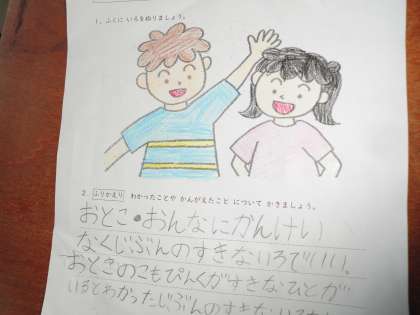 1. ふくに いろをぬりましょう。
2. ふりかえり わかったことや かんがえたこと について かきましょう。
おとこ・おんなにかんけい
なくじぶんのすきないろでいい。
おとこのこもぴんくがすきなひとが
いるとわかったじぶんのすきないろ